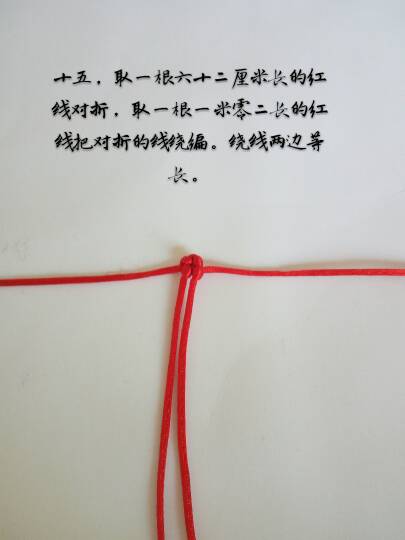 十五，取一根六十二厘米长的红
线对折，取一根一米零二长的红
线把对折的线绕编。绕线两边等
长。